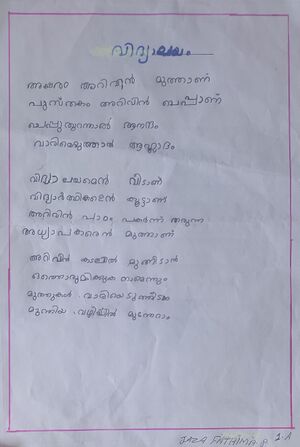 വിദ്യാലയം
അക്ഷരം അറിവിൻ മുത്താണ്
പുസ്തകം അറിവിൻ ചെപ്പാണ്
ചെപ്പുതുറന്നാൽ ആനന്ദം
വാരിയെടുത്താൽ ആഹ്ലാദം
വിദ്യാലയമെൻ വീടാണ്
വിദ്യാർത്ഥികളെൻ കൂട്ടാണ്
അറിവിൻ പാഠം പകർന്ന് തരുന്ന
അധ്യാപകരെൻ മുത്താണ്
അറിവിൻ കടലിൽ മുങ്ങീടാൻ
ഒത്തൊരുമിക്കുക നാമെന്നും
മുത്തുകൾ വാരിയെടുത്തീടാം
മുന്നിയ വഴിയിൽ മുന്നേറാം
JAZA FATHIMA P 2.A